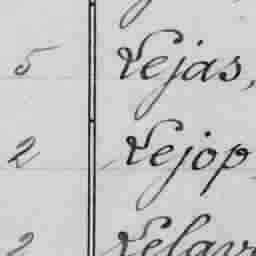 5 Vejas,
2 Vejop
2 Velav